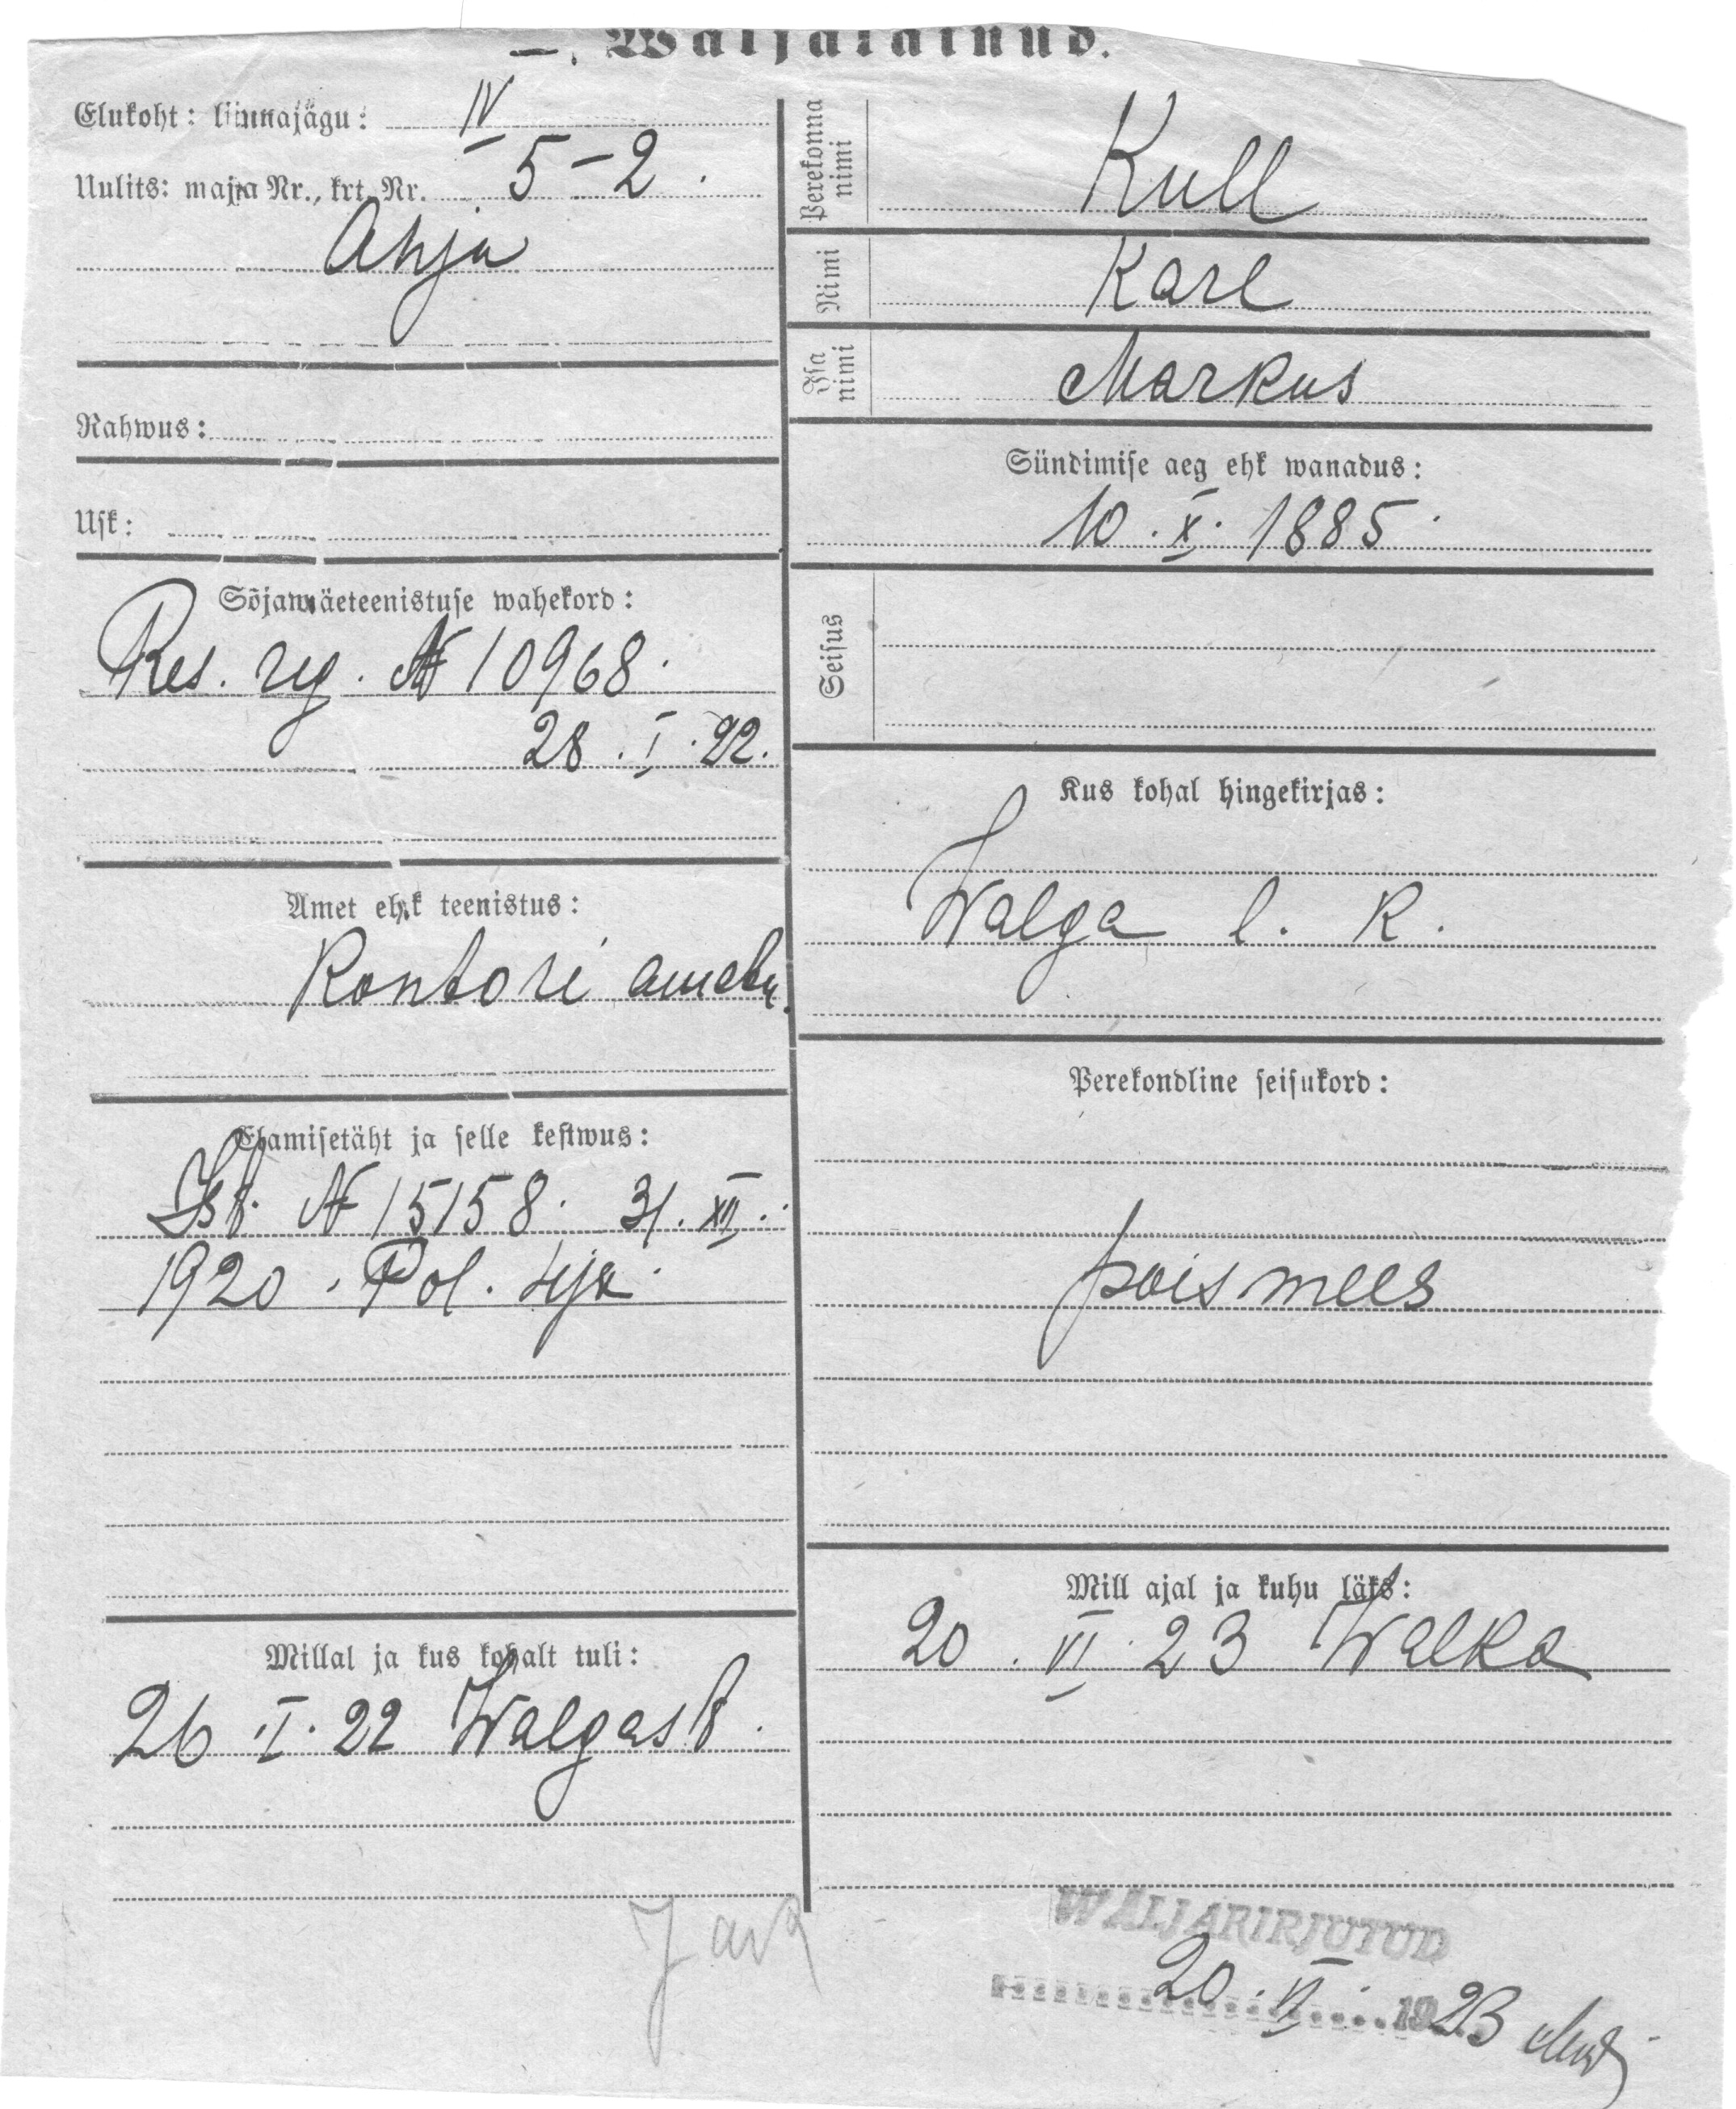 Elukoht: linnajägu: IV
Uulits: maja Nr., krt. Nr. 5-2.
Ahja
Rahwus:
Usk:
Sõjawäeteenistuse wahekord:
Res. reg. № 10968.
28. I. 22.
Amet ehk teenistus:
Kontori ametn.
Elamisetäht ja selle kestwus:
Ist. № 15158. 31. XII.
1920. Pol. 4ja.
Millal ja kus kohalt tuli:
26. I. 22 Walgast.
Perekonna nimi
Kull
Nimi
Karl
Isa nimi
Markus
Sündimise aeg ehk wanadus:
10. X. 1885.
Seisus
Kus kohal hingekirjas:
Walga l. k.
Perekondline seisukord:
poismees
Mill ajal ja kuhu läks:
20. VI. 23 Walka
WÄLJAKIRJUTUD
20. VI. 1923